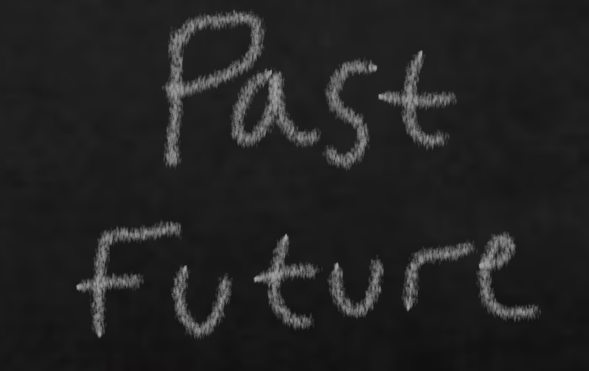 Past
Future